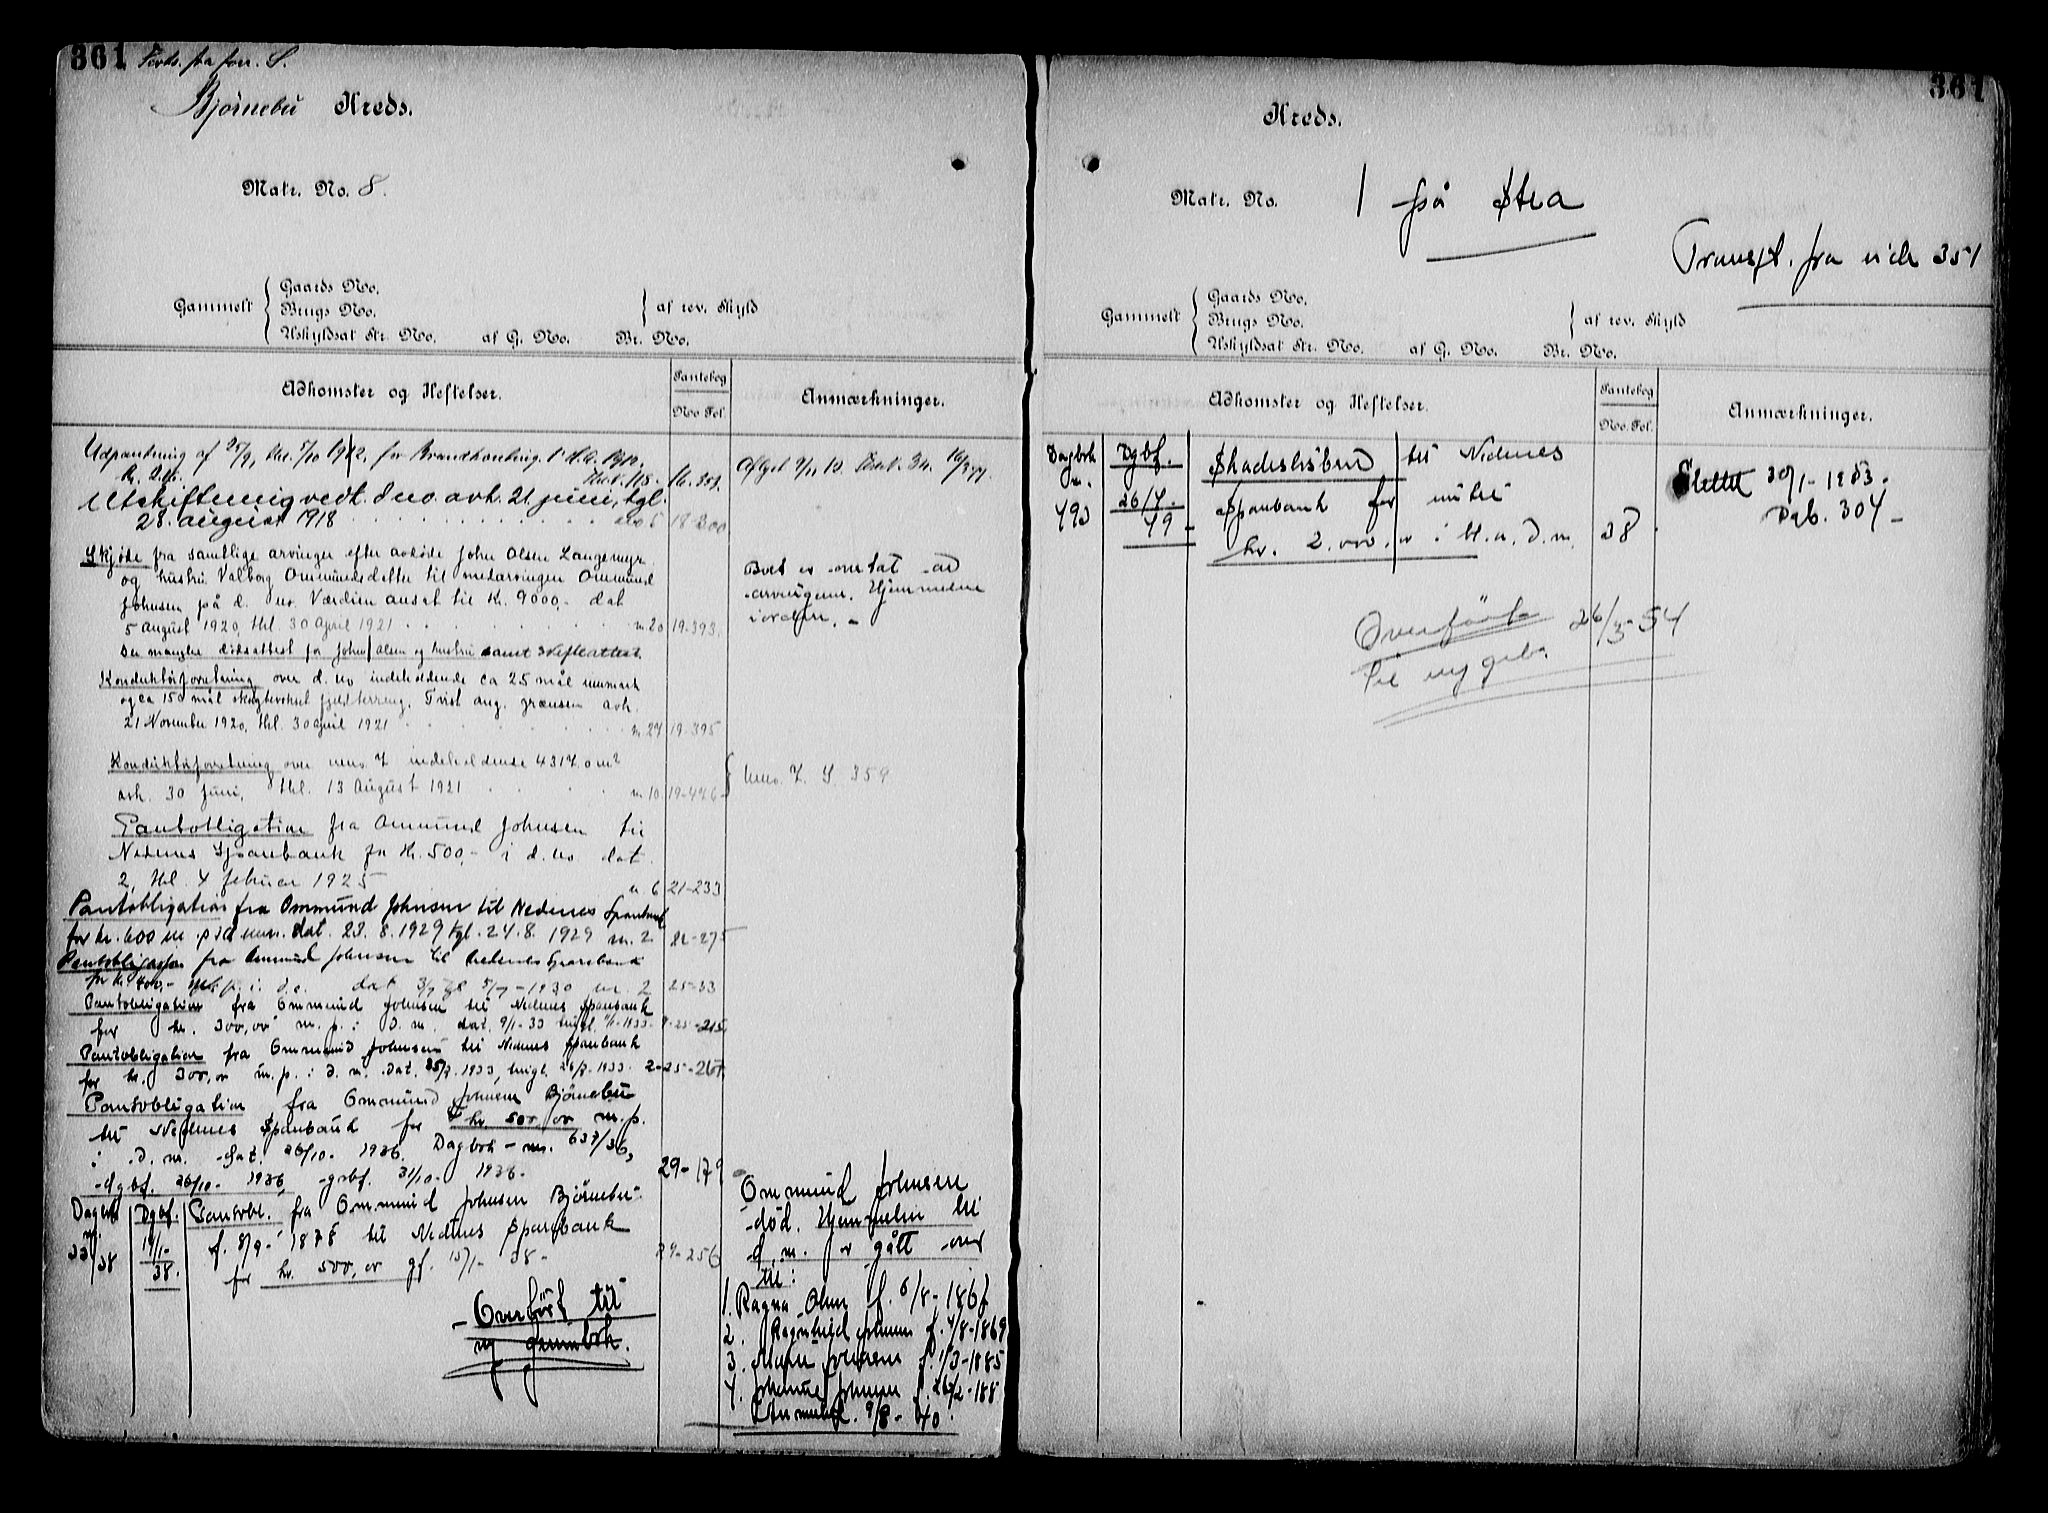 361 Forts. fra forr. S.
Bjørnebu Kreds.
Matr. No. 8.
Gammelt { Gaards No.
Brugs No.
Uskyldsat Str. No. af G. No. Br. No. } af rev. Skyld
Adkomster og Heftelser.
Pantebog
No Fol.
Anmærkninger.
Udpantning af 25/9, thl. 5/10 1912, for Brandkonting.
16.
Aflyst
Utskiftning vedk. d no. avh. 21 juni, tgl.
28. august 1918 no 5 18-300
Skjøde fra samtlige arvinger efter avdøde John Olsen Langemyr
og hustru Valborg Ommundsdatter til medarvingen Ommund
Johnsen på d. no. Værdien ansat til Kr. 9000,- dat
5 august 1920, thl. 30 April 1921 n. 20 19-393.
Der mangler dødsattest for John Olsen og hustru samt skifteattest.
Boet er overtat av
arvingerne. Hjemmelen
iorden. -
Konduktørforretning over d. no indeholdende ca 25 mål innmark
og ca 150 mål skogbevokset fjeldterreng. Tvist ang. grænsen avh.
21 November 1920, thl. 30 april 1921 n. 27 19-395
Konduktørforretning over unr. 7 indeholdende 4317.0 m²
avh. 30 Juni, thl. 13 August 1921 n. 10 19-476
unr. 7. S 359
Pantobligation fra Ommund Johnsen til
Nedenes Sparebank for Kr. 500,- i d. no dat.
2, thl. 4 februar 1925 n 6 21-233
Pantobligation fra Ommund Johnsen til Nedenes Sparebank
for kr. 600 m. p i d unr. dat. 23. 8. 1929 tgl. 24. 8. 1929 nr. 2.
Pantobligasjon fra Ommund Johnsen til Nedenes Sparebank
for kr. 400,- m. p. i. d. dat 3/7 tgl 5/7-1930 nr. 2 25-33
Pantobligation fra Ommund Johnsen til Nedenes Sparebank
for kr. 300,00 m. p. i d. nr. dat. 9/1-33 tingl. 11/1-1933- 25-215
Pantobligation fra Ommund Johnsen til Nedenes Sparebank
for kr. 300,00 m. p. i d. nr. dat. 25/7. 1933, tingl. 26/7-1933- 2-25-267.
Pantobligation fra Ommund Johnsen Bjørnebu
til Nedenes Sparebank for kr. 500,00 m. p.
i d. nr. dat. 26/10- 1936. Dagbok-nr. 637/36,
dgbf. 26/10- 1936 grbf. 31/10- 1936- 29-179
Dagbok nr. 33/38
Dgbf. 14/1-38.
Pantobl. fra Ommund Johnsen Bjørnebu
f. 8/9- 1878 til Nedenes Sparebank
for kr. 500,00 gf. 15/1- 38- 29-256
- Overført til
ny grunnbok.
Ommund Johnsen
død. Hjemmelen til
d. nr. er gått over
til:
1. Ragna Olsen f. 6/8-1867
2. Ragnhild Johnsen f. 4/8-1869
3. Marie Johnsen f. 1/3-1885
4. Johanne Johnsen f. 26/2-188
9/8- 40.
361
Kreds.
Matr. No. 1 på Strå
Transpt. fra side 351
Gammelt { Gaards No.
Brugs No.
Uskyldsat Str. No. af G. No. Br. No. } af rev. Skyld
Adkomster og Heftelser.
Pantebog
No. Fol.
Anmærkninger.
Dagbok nr. 493
Dgbf. 26/4-49
Skadesløsbrev til Nedenes
Sparebank for inntil
kr. 2.000.00 i bl. a. d. nr. 38
Slettet 30/1-1953.
Dgb. 304 -
Overført 26/3-54
til ny grb.